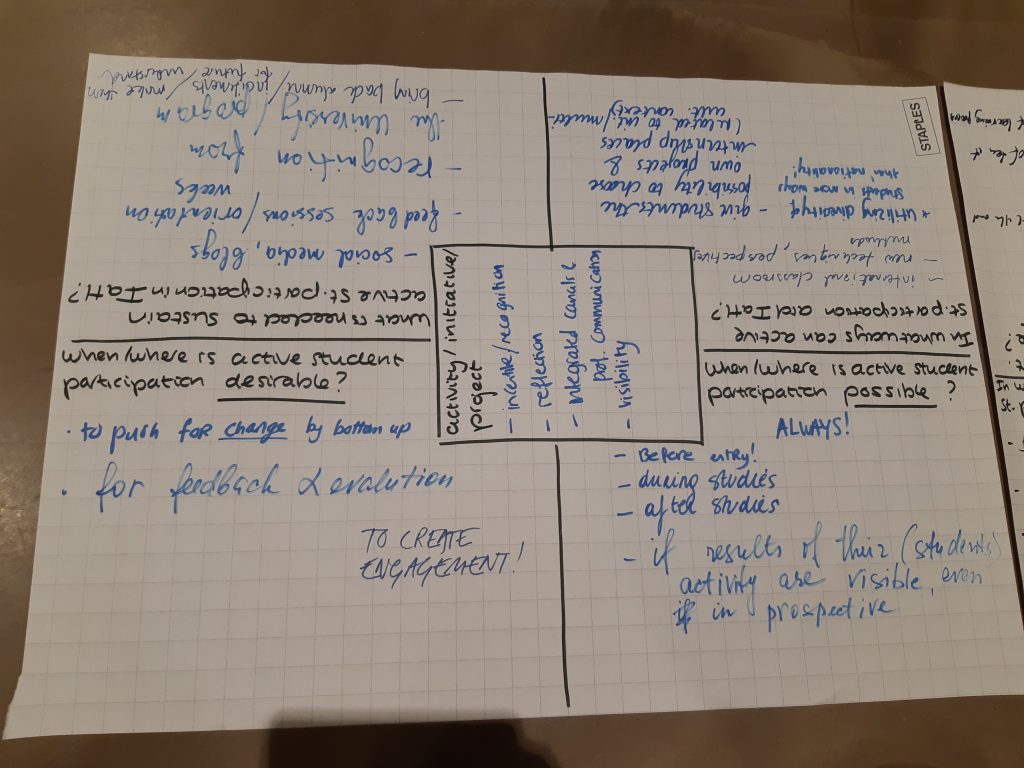 When/where is active student
participation desirable?
· to push for change by bottom up
· for feedback & evalution
TO CREATE
ENGAGEMENT!
When/where is active student
participation possible?
ALWAYS!
- Before entry!
- during studies
- after studies
- if results of their (students)
activity are visible, even
if in prospective
activity/initiative/
project
- incentive/recognition
- reflection
- integrated canvas &
pos. communication
- visibility
what is needed to sustain
active st. participation in IatH?
- social media, blogs
- feedback sessions/orientation
weeks
- recognition from
the University/program
- bring back alumni / make them
for future / understand
In what ways can active
st. participation and IatH?
- international classroom
- new techniques, perspectives,
methods
* Utilizing diversity of
students in more ways
than nationality!
- give students the
possibility to choose
own projects &
internship places
(related to int/multi
cult. context)
STAPLES
learning
the and